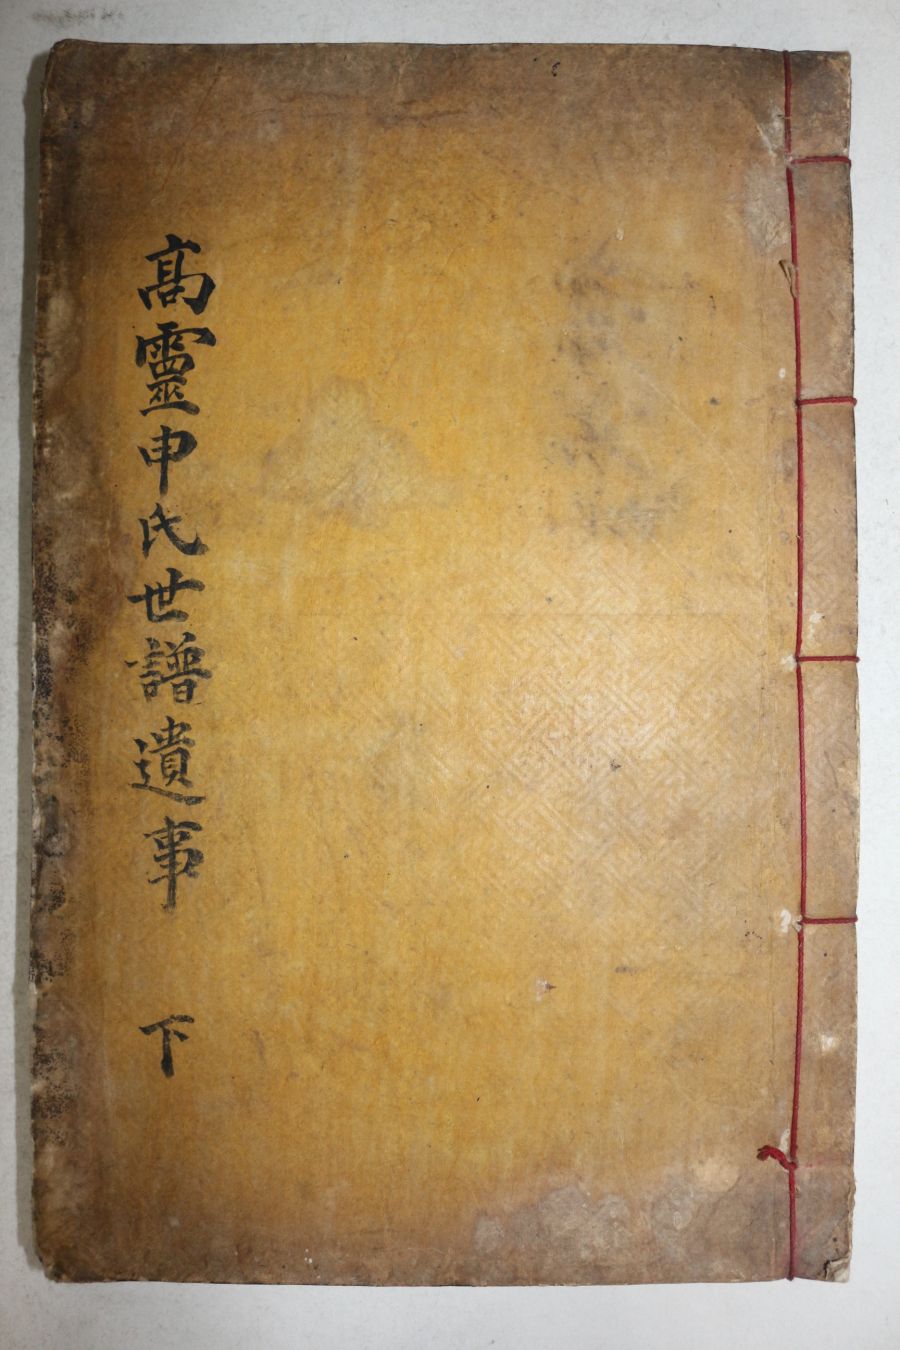 高靈申氏世譜遺事 下